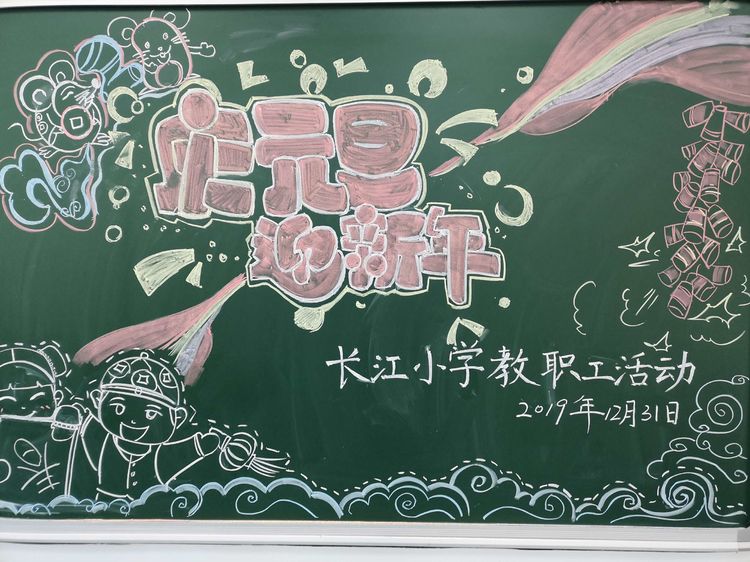 庆元旦
迎新年
长江小学教职工活动
2019年12月31日